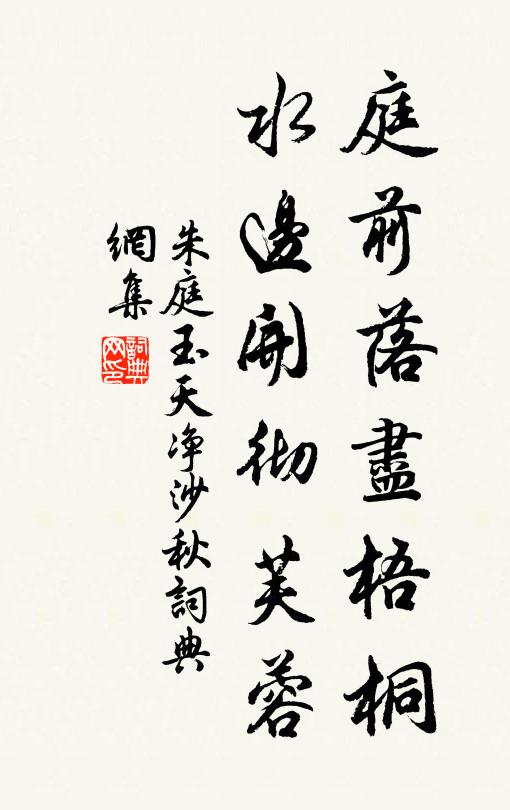 庭前落盡梧桐
水邊開彻芙蓉
朱庭玉天净沙秋詞典
網集
詞典
网印